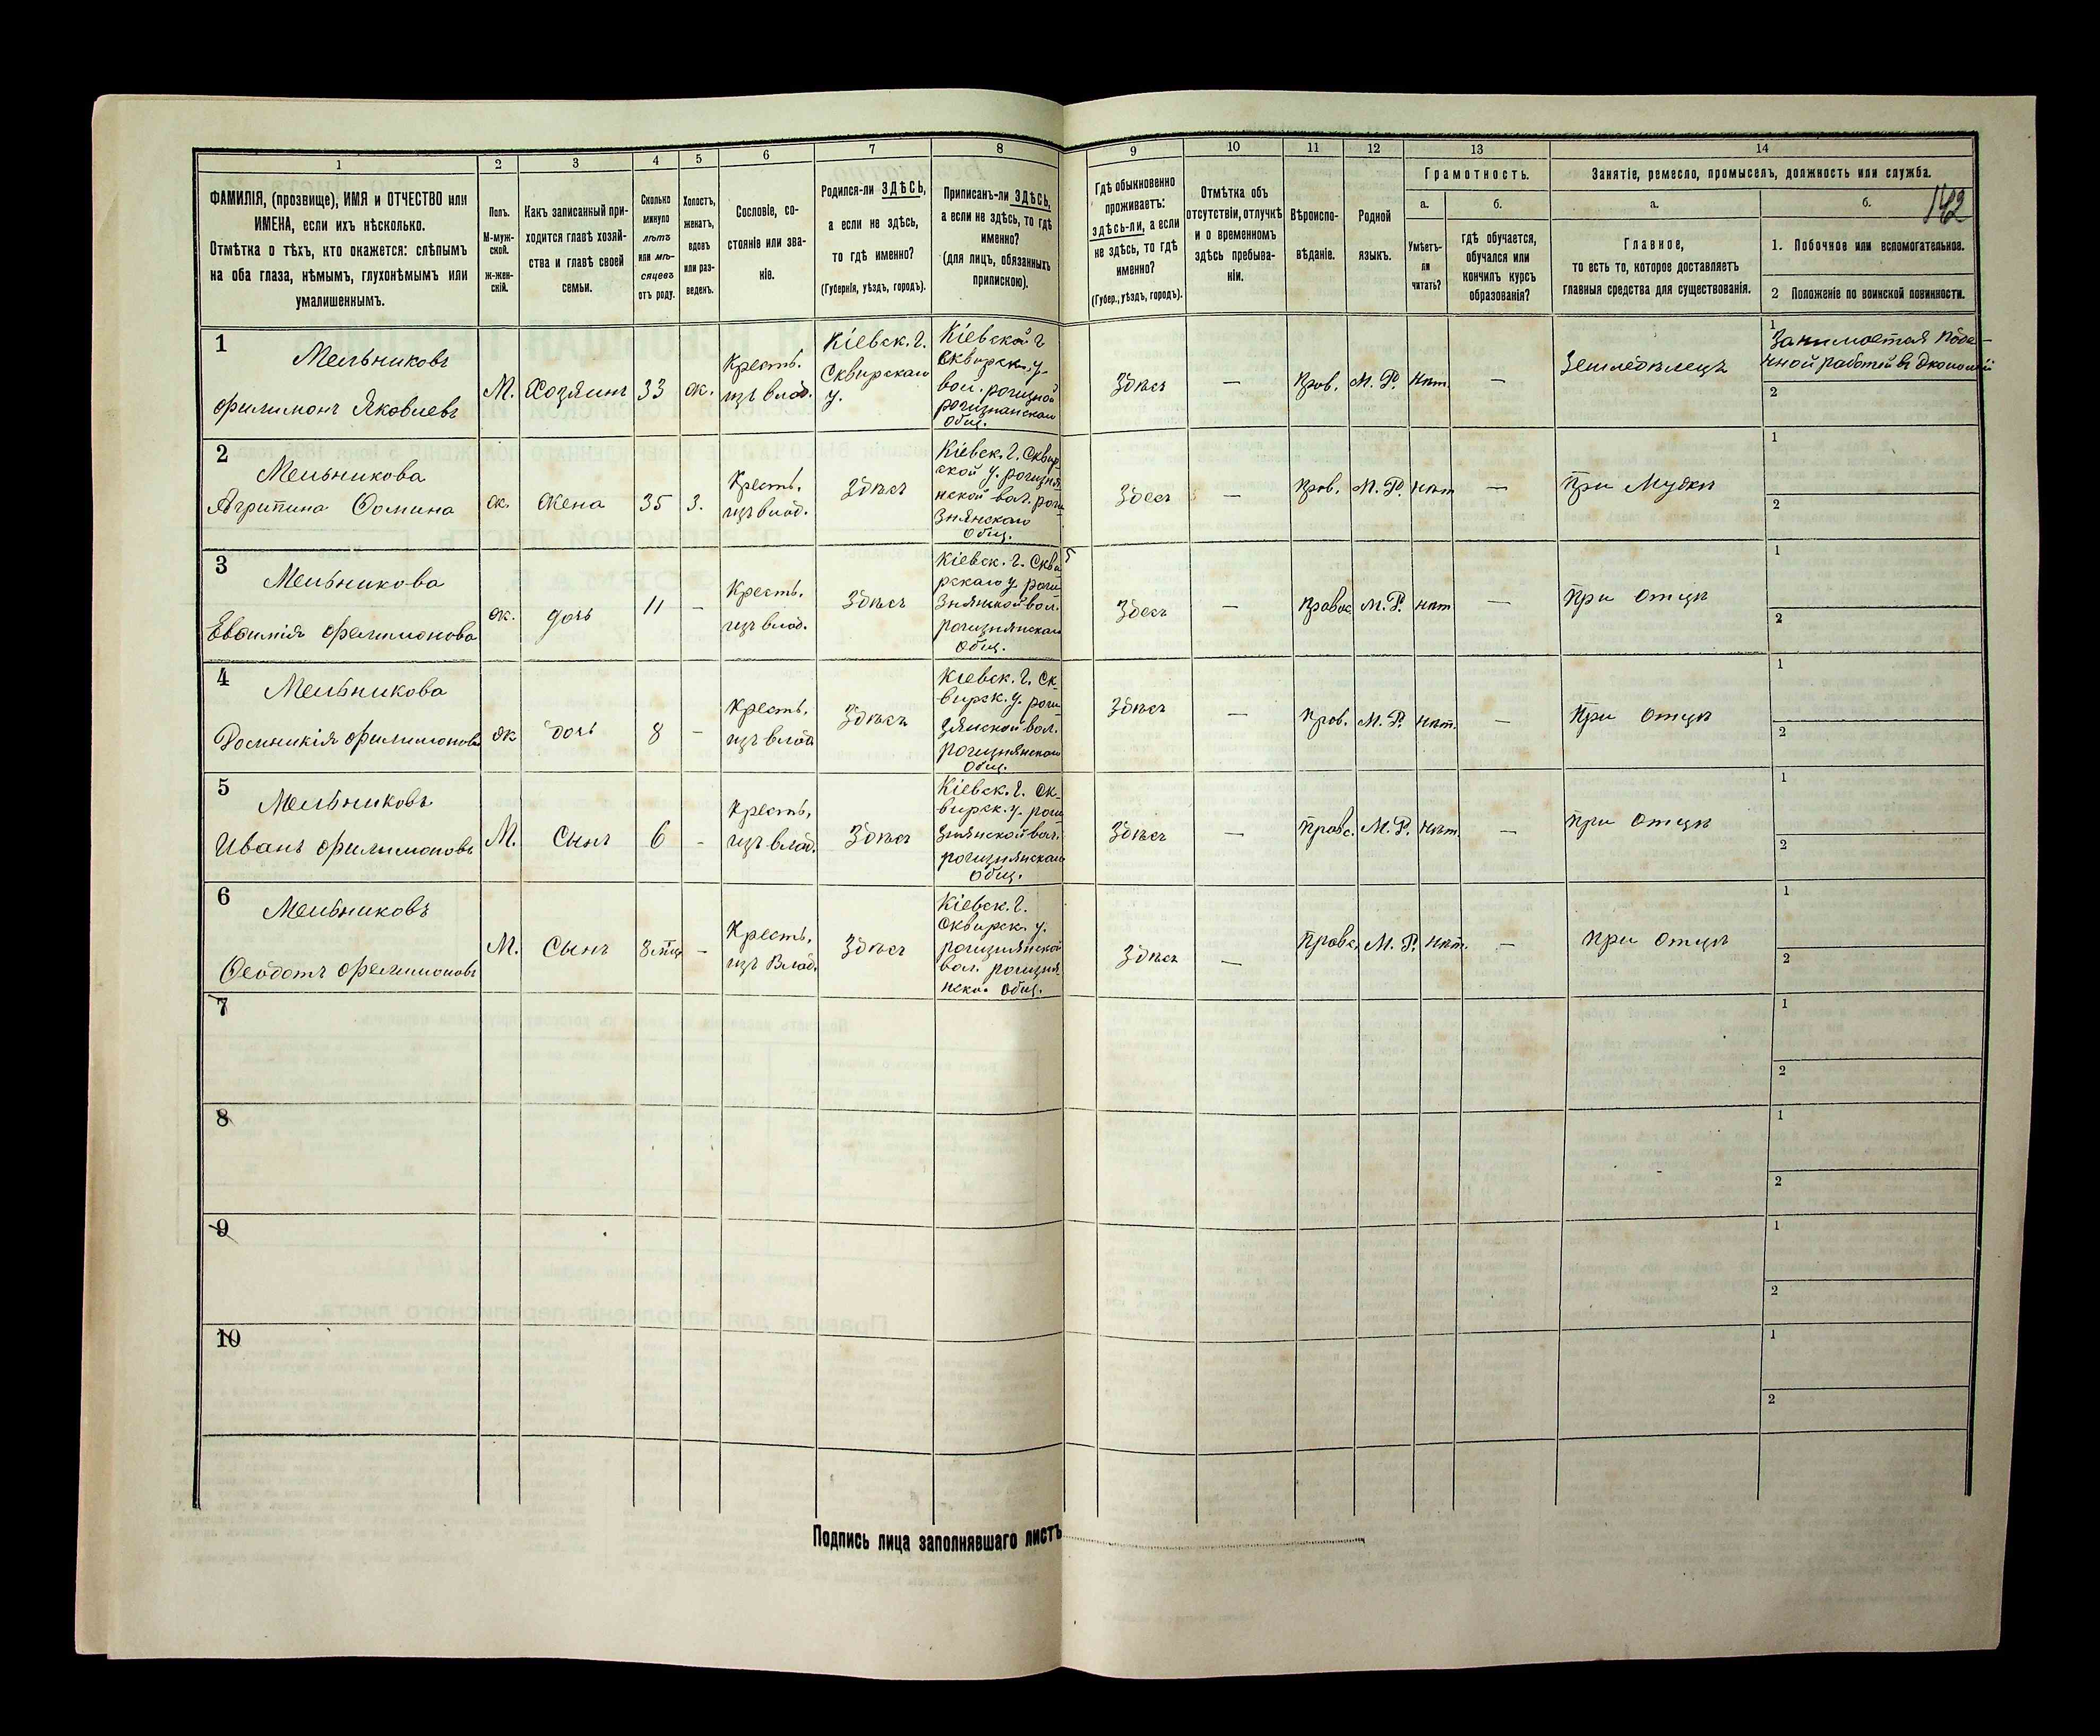 1 2 3 4 5 6 7 8 9 10 11 12 13 14
ФАМИЛІЯ, (прозвище), ИМЯ и ОТЧЕСТВО или
ИМЕНА, если ихъ нѣсколько.
Отмѣтка о тѣхъ, кто окажется: слѣпымъ
на оба глаза, нѣмымъ, глухонѣмымъ или
умалишеннымъ.
Полъ.
М-муж-
ской.
ж-жен-
скій.
Какъ записанный при-
ходится главѣ хозяй-
ства и главѣ своей
семьи.
Сколько
минуло
лѣтъ
или мѣ-
сяцевъ
отъ роду.
Холостъ,
женатъ,
вдовъ
или раз-
веденъ.
Сословіе, со-
стояніе или зва-
ніе.
Родился-ли ЗДѢСЬ,
а если не здѣсь,
то гдѣ именно?
(Губернія, уѣздъ, городъ).
Приписанъ-ли ЗДѢСЬ,
а если не здѣсь, то гдѣ
именно?
(для лицъ, обязанныхъ
припискою).
Гдѣ обыкновенно
проживаетъ:
здѣсь-ли, а если
не здѣсь, то гдѣ
именно?
(Губер., уѣздъ, городъ).
Отмѣтка объ
отсутствіи, отлучкѣ
и о временномъ
здѣсь пребыва-
ніи.
Вѣроиспо-
вѣданіе.
Родной
языкъ.
Грамотность.
а.
Умѣетъ-
ли
читать?
б.
гдѣ обучается,
обучался или
кончилъ курсъ
образованія?
Занятіе, ремесло, промыселъ, должность или служба.
а.
Главное,
то есть то, которое доставляетъ
главныя средства для существованія.
б.
1. Побочное или вспомогательное.
2 Положеніе по воинской повинности.
1
Мельниковъ
Филимонъ Яковлевъ
М. Хозяинъ 33 ж.
Кресть.
изъ влад.
Кіевск. г.
Сквирскаго
у.
Кіевской г
Сквирск. у.
вол.
общ.
Здѣсь — Прав. М. Р. нѣт. —
Земледѣлецъ
1
Занимается поде-
нной работой въ Экономіи
2
2
Мельникова
Агрипина Фомина
ж. Жена 35 З.
Кресть.
изъ влад.
Здѣсь
Кіевск. г. Сквир-
ской у.
нской вол.
знянскаго
Общ.
Здесь — Прав. М. Р. нѣт —
При Мужѣ
1
2
3
Мельникова
Евфимія Филимонова
ж. дочь 11 -
Кресть.
изъ влад.
Здѣсь
Кіевск. г. Скви
рскаго у.
знянской вол.
общ.
Здесь — Правос. М. Р. нѣт —
При Отцѣ
1
2
4
Мельникова
Домникія Филимонова
ж дочь 8 -
Кресть.
изъ влад
Здѣсь
Кіевск. г. Ск-
вирск. у.
вол.
Общ.
Здѣсь — Прав. М. Р. нѣт. —
При Отцѣ
1
2
5
Мельниковъ
Иванъ Филимоновъ
М. Сынъ 6 -
Кресть.
изъ влад.
Здѣсь
Кіевск. г. Ск-
вирск. у.
знянской вол.
общ.
Здѣсь — Правс. М. Р. нѣт. —
При Отцѣ
1
2
6
Мельниковъ
Феодотъ Филимоновъ
М. Сынъ 8 -
Кресть.
изъ Влад.
Здѣсь
Кіевск. г.
Сквирск. у.
вол.
Общ.
Здѣсь — Правс. М. Р. нѣт. —
При Отцѣ
1
2
7
1
2
8
1
2
9
1
2
10
1
2
Подпись лица заполнявшаго листъ